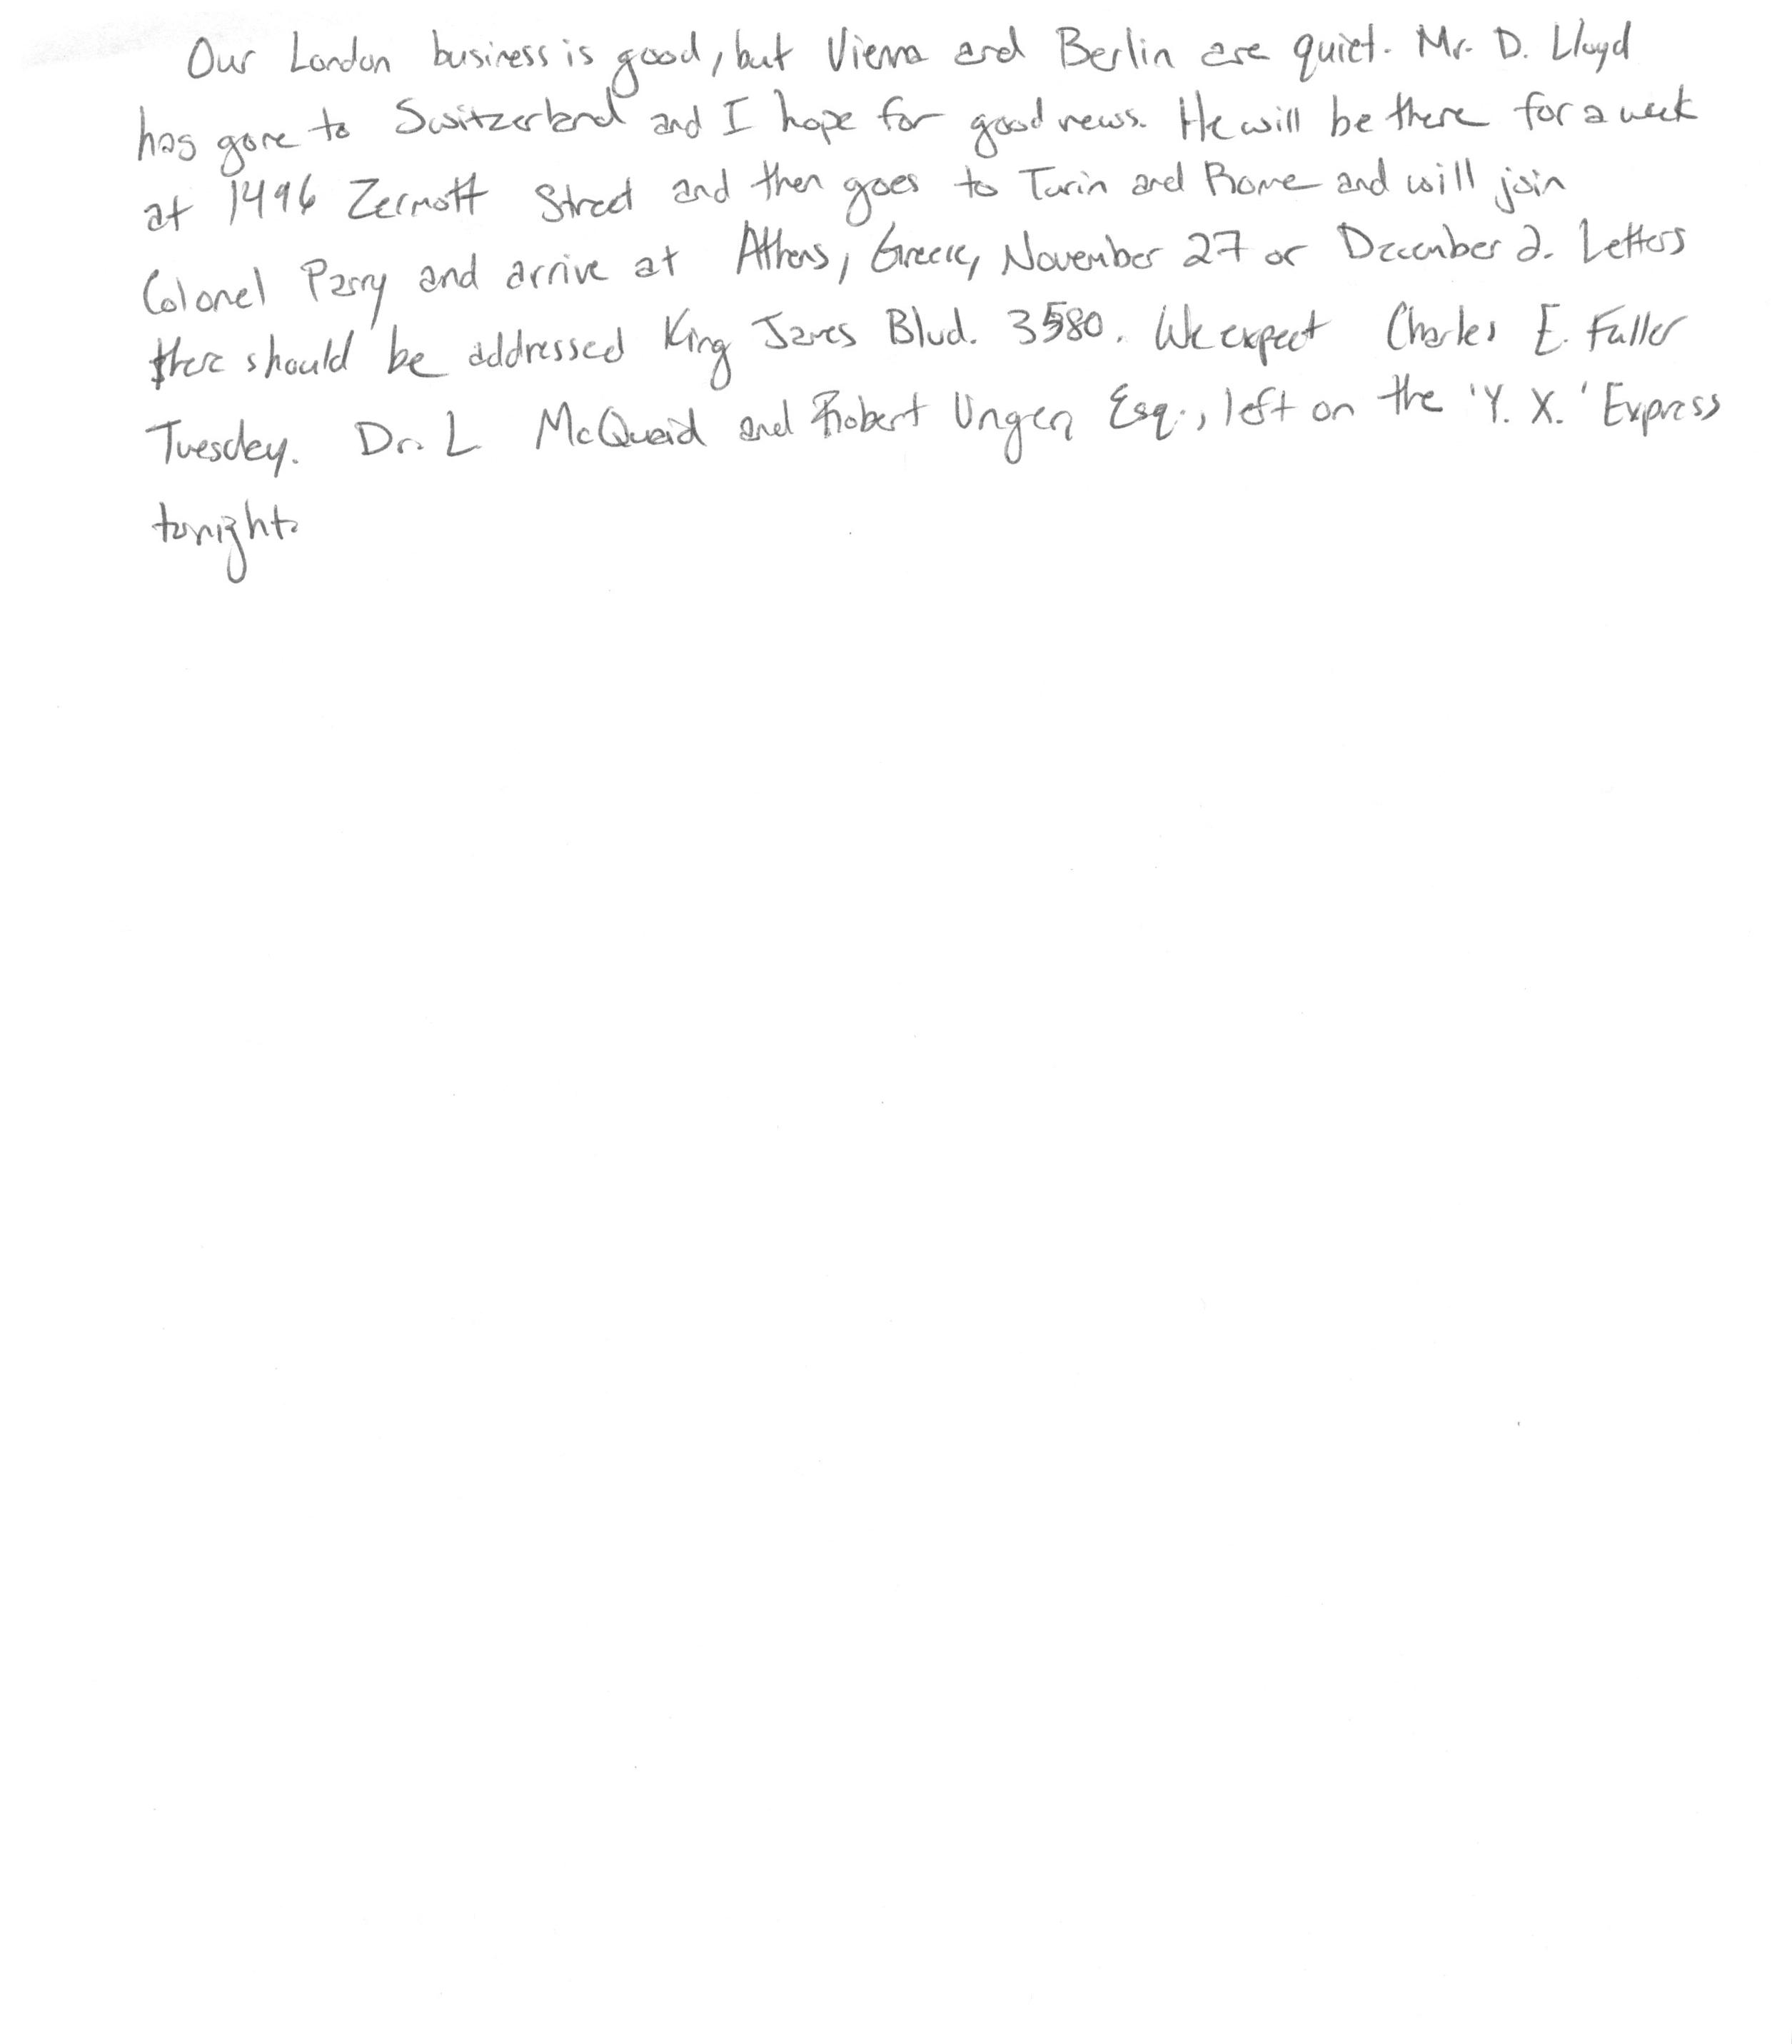 Our London business is good, but Vienna and Berlin are quiet. Mr. D. Lloyd
has gone to Switzerland and I hope for good news. He will be there for a week
at 1496 Zermott Street and then goes to Turin and Rome and will join
Colonel Parry and arrive at Athens, Greece, November 27 or December 2. Letters
there should be addressed King James Blvd. 3580. We expect Charles E. Fuller
Tuesday. Dr. L McQuaid and Robert Unger, Esq., left on the 'Y. X.' Express
tonight.